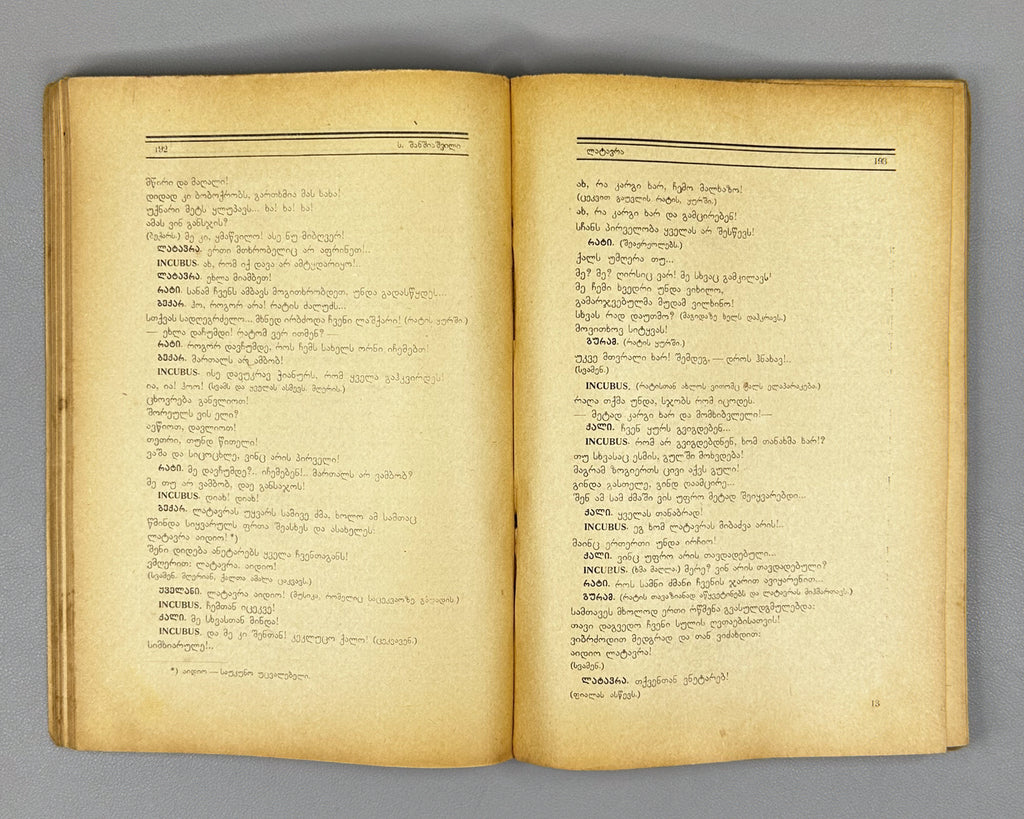 192
ს. შანშიაშვილი
მწირი და მაღალი!
დიდად კი ბობოქრობს, გართხმია მას სახა!
უქნარი მეტს ყლუპავს... ხა! ხა! ხა!
ამას ვინ განსჯის?
(ბექარს.) მე კი, ყმაწვილო! ასე ნუ მიბღვერ!
ლატავრა. ერთი მთხრობელიც არ აფრინეთ!..
INCUBUS. ახ, რომ იქ დავა არ ამტყდარიყო!..
ლატავრა. ეხლა მიამბეთ!
რატი. სანამ ჩვენს ამბავს მოგითხრობდეთ, უნდა გადასწყდეს...
ბექარ. ჰო, როგორ არა! რატის ძალუძს...
სთქვას სადღეგრძელო... მხნედ ირბძოდა ჩვენი ლაშქარი! (რატის ყურში.)
— ეხლა დაჩუმდი! რატომ ვერ ითმენ?
რატი. როგორ დავჩუმდე, როს ჩემს სახელს ორნი იჩემებთ!
ბექარ. მართალს არ ამბობ!
INCUBUS. ისე დავუკრავ ჭიანურს, რომ ყველა გაჰკვირდეს!
ია, ია! ჰოო! (სვამს და ყველას ასმევს. მღერის.)
ცხოვრება განვლიოთ!
შორეულს ვის ელი?
ავწიოთ, დავლიოთ!
თეთრი, თუნდ წითელი!
ვაშა და სიცოცხლე, ვინც არის პირველი!
რატი. მე დავჩუმდე?.. იჩემებენ!.. მართალს არ ვამბობ?
მე თუ არ ვამბობ, დაე განსაჯოს!
INCUBUS. დიახ! დიახ!
ბექარ. ლატავრას უყვარს სამივე ძმა, ხოლო ამ სამთაც
წმინდა სიყვარულს ფრთა შეასხეს და ასახელეს:
ლატავრა აიდიო! *)
შენი დიდება ანეტარებს ყველა ჩვენთაგანს!
ვმღერით: ლატავრა, აიდიო!
(სვამენ. მღერიან, ქალთა ამალა ცაკვავს.)
ყველანი. ლატავრა აიდიო! (მუსიკა, რომელიც საცეკვაოზე გადადის.)
INCUBUS. ჩემთან იცეკვე!
ქალი. მე სხვასთან მინდა!
INCUBUS. და მე კი შენთან! კეკლუცო ქალო! (ცეკვავენ.)
სიმხიარულე!..
*) აიდიო — საუკუნო უცვალებელი.
ლატავრა
193
ახ, რა კარგი ხარ, ჩემო მალხაზო!
(ცეკვით გაუვლის რატის, ყურში.)
ახ, რა კარგი ხარ და გამცირებენ!
სჩანს პირველობა ყველას არ შესწევს!
რატი. (შეაჟრჟოლებს.)
ქალს უმღერა თუ...
მე? მე? ღირსიც ვარ! მე სხვაც გამკილავს!
მე ჩემი ხვედრი უნდა ვიხილო,
გამარჯვებულმა მუდამ ვილხინო!
სხვას რად დაუთმო? (მაგიდაზე ხელს დაჰკრავს.)
მოვითხოვ სიტყვას!
გურამ. (რატის ყურში.)
უკვე მთვრალი ხარ! შემდეგ, — დროს ჰნახავ!..
(სვამენ.)
INCUBUS. (რატისთან ახლოს ვითომც ქალს ელაპარაკება.)
რაღა თქმა უნდა, სჯობს რომ იცოდეს.
— მეტად კარგი ხარ და მომხიბვლელი!—
ქალი. ჩვენ ყურს გვიგდებენ...
INCUBUS. რომ არ გვიგდებდნენ, ხომ თანახმა ხარ!?
თუ სხვასაც ესმის, გულში მოხვდება!
მაგრამ ზოგიერთს ცივი აქვს გული!
გინდა გასთელე, გინდ დაამცირე...
შენ ამ სამ ძმაში ვის უფრო მეტად შეიყვარებდი...
ქალი. ყველას თანაბრად!
INCUBUS. ეგ ხომ ლატავრას მიბაძვა არის!..
მაინც ერთერთი უნდა ირჩიო!
ქალი. ვინც უფრო არის თავდადებული...
INCUBUS. (ხმა მაღლა.) მერე? ვინ არის თავდადებული?
რატი. როს სამნი ძმანი ჩვენის ჯარით ავიყარენით...
გურამ. (რატის თავაზიანად აწყვეტინებს და ლატავრას მიჰმართავს.)
სამთავეს მხოლოდ ერთი რწმენა გვასულდგმულებდა:
თავი დაგვედო ჩვენი სულის ღვთაებისათვის!
ვიბრძოდით მედგრად და თან ვიძახდით:
აიდიო ლატავრა!
(სვამენ.)
ლატავრა. თქვენთან ვნეტარებ!
(ფიალას ასწევს.)
13